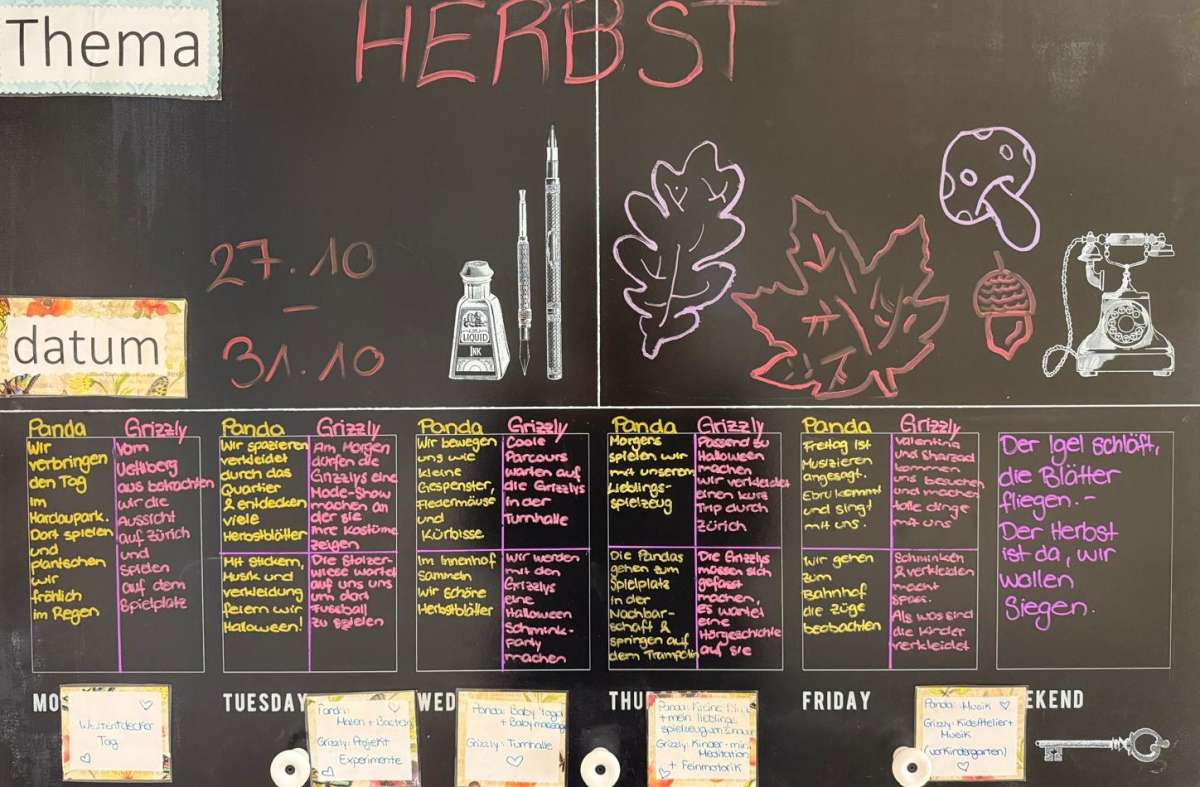 Thema
HERBST
27.10
–
31.10
datum
LIQUID
INK
Panda
Wir
verbringen
den Tag
im
Hardaupark.
Dort spielen
und
plantschen
wir
fröhlich
im Regen
Grizzly
Vom
Uetliberg
aus betrachten
wir die
Aussicht
auf Zürich
und
spielen
auf dem
Spielplatz
Panda
Wir spazieren
verkleidet
durch das
Quartier
& entdecken
viele
Herbstblätter
Mit Stickern,
Musik und
verkleidung
feiern wir
Halloween!
Grizzly
Am Morgen
dürfen die
Grizzlys eine
Mode-Show
machen an
der sie
ihre Kostüme
zeigen
Die Stolzer-
wiese wartet
auf uns um
dort
Fussball
zu spielen
Panda
Wir bewegen
uns wie
kleine
Gespenster,
Fledermäuse
und
Kürbisse
Im Innenhof
sammeln
wir schöne
Herbstblätter
Grizzly
Coole
Parcours
warten auf
die Grizzlys
in der
Turnhalle
Wir werden
mit den
Grizzlys
eine
Halloween
Schmink-
party
machen
Panda
Morgens
spielen wir
mit unserem
Lieblings-
spielzeug
Die Pandas
gehen zum
Spielplatz
in der
Nachbar-
schaft &
springen auf
dem Trampolin
Grizzly
Passend zu
Halloween
machen
wir verkleidet
einen kurz
Trip durch
Zürich
Die Grizzlys
müssen sich
gefasst
machen,
es wartet
eine
Hörgeschichte
auf sie
Panda
Freitag ist
Musizieren
angesagt.
Ebru kommt
und singt
mit uns.
Wir gehen
zum
Bahnhof
die Züge
beobachten
Grizzly
Valentina
und Sharzad
kommen
uns besuchen
und machen
tolle dinge
mit uns
Schminken
& verkleiden
macht
spass.
Als was sind
die Kinder
verkleidet
Der Igel schläft,
die Blätter
fliegen.-
Der Herbst
ist da, wir
wollen
Siegen.
MO
TUESDAY
WED
THU
FRIDAY
EKEND
Weltentdecker
Tag
Panda:
Malen + Basteln
Grizzly: Projekt
Experimente
Panda: Baby Yoga
+ Babymassage
Grizzly: Turnhalle
Panda: Kleine
+ mein lieblings
spielzeug von Zuhause
Grizzly: Kinder-
Meditation
+ Feinmotorik
Panda: Musik
Grizzly: KidsAtelier +
Musik
(vorkindergarten)